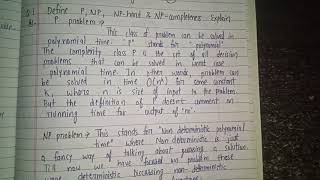 Q.1 Define P, NP, NP-hard & NP-completeness. Explain
P problem →
This class of problem can be solved in
polynomial time. "P" stands for "polynomial"
The complexity class P is the set of all decision
problems that can be solved in worst case
polynomial time. In other words, problem can
be solved in time O(n^k) for some constant
K, where n is size of input to the problem.
But the definition of P doesn't comment on
running time for output of 'no'.
NP problem → This stands for "Non deterministic polynomial
time" where Non deterministic is just
a fancy way of talking about guessing a solution.
Till now we have focused on problem these
were deterministic. Discussing non-deterministic